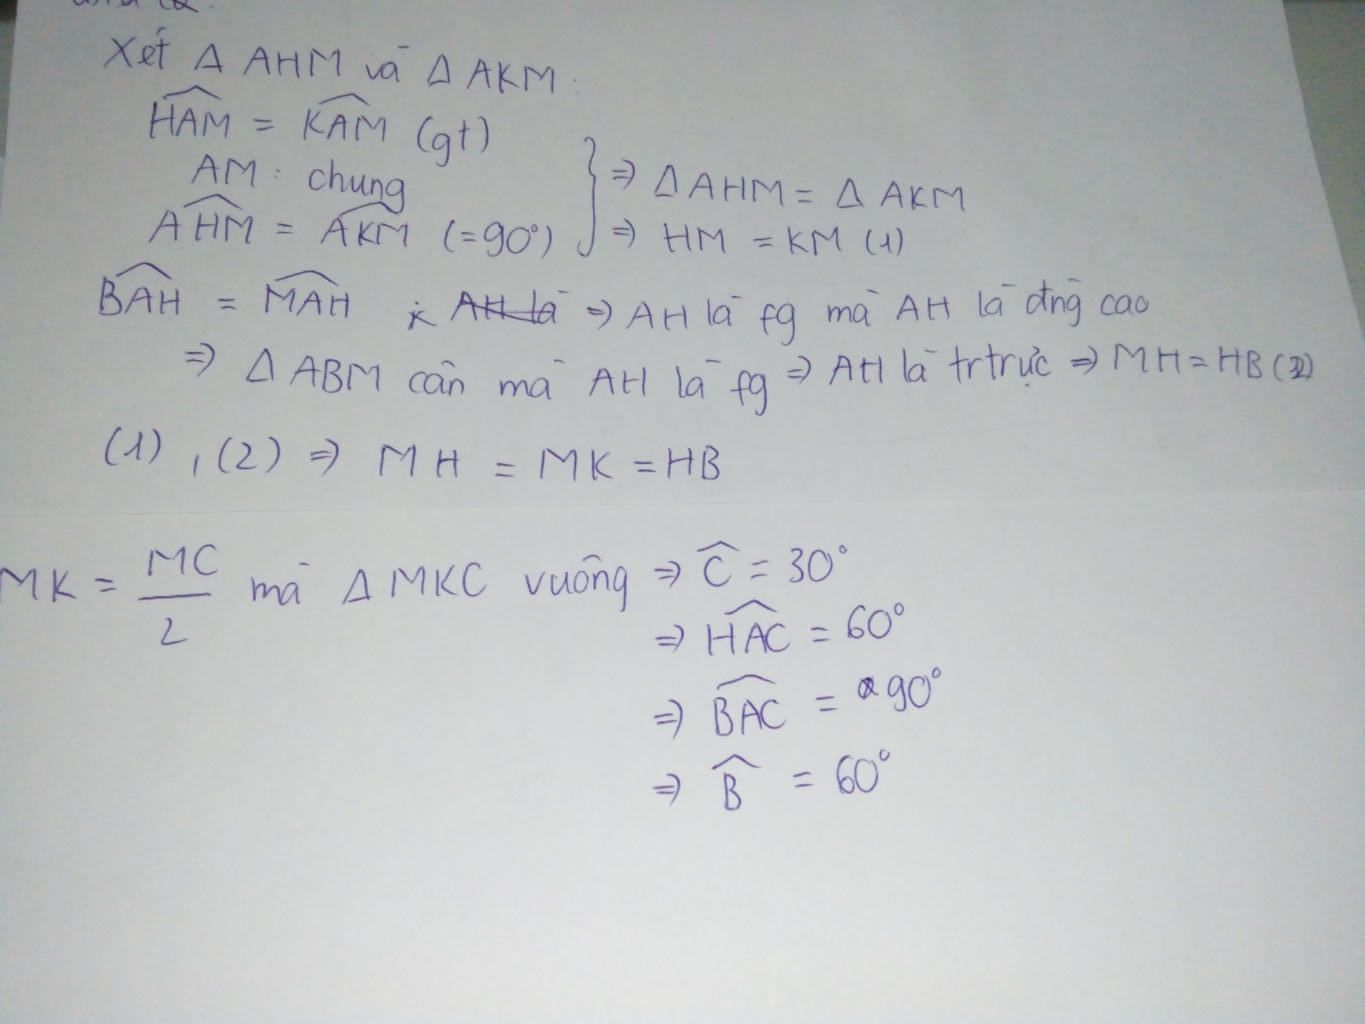 Xét Δ AHM và Δ AKM :
HAM̂ = KAM̂ (gt)
AM : chung
AHM̂ = AKM̂ (=90°) } ⇒ Δ AHM = Δ AKM
⇒ HM = KM (1)
BAĤ = MAĤ ⇒ AH là fg mà AH là đng̀ cao
⇒ Δ ABM cân mà AH là fg ⇒ AH là trtrực ⇒ MH = HB (2)
(1) , (2) ⇒ MH = MK = HB
MK = MC/2 mà Δ MKC vuông ⇒ Ĉ = 30°
⇒ HAĈ = 60°
⇒ BAĈ = 90°
⇒ B̂ = 60°